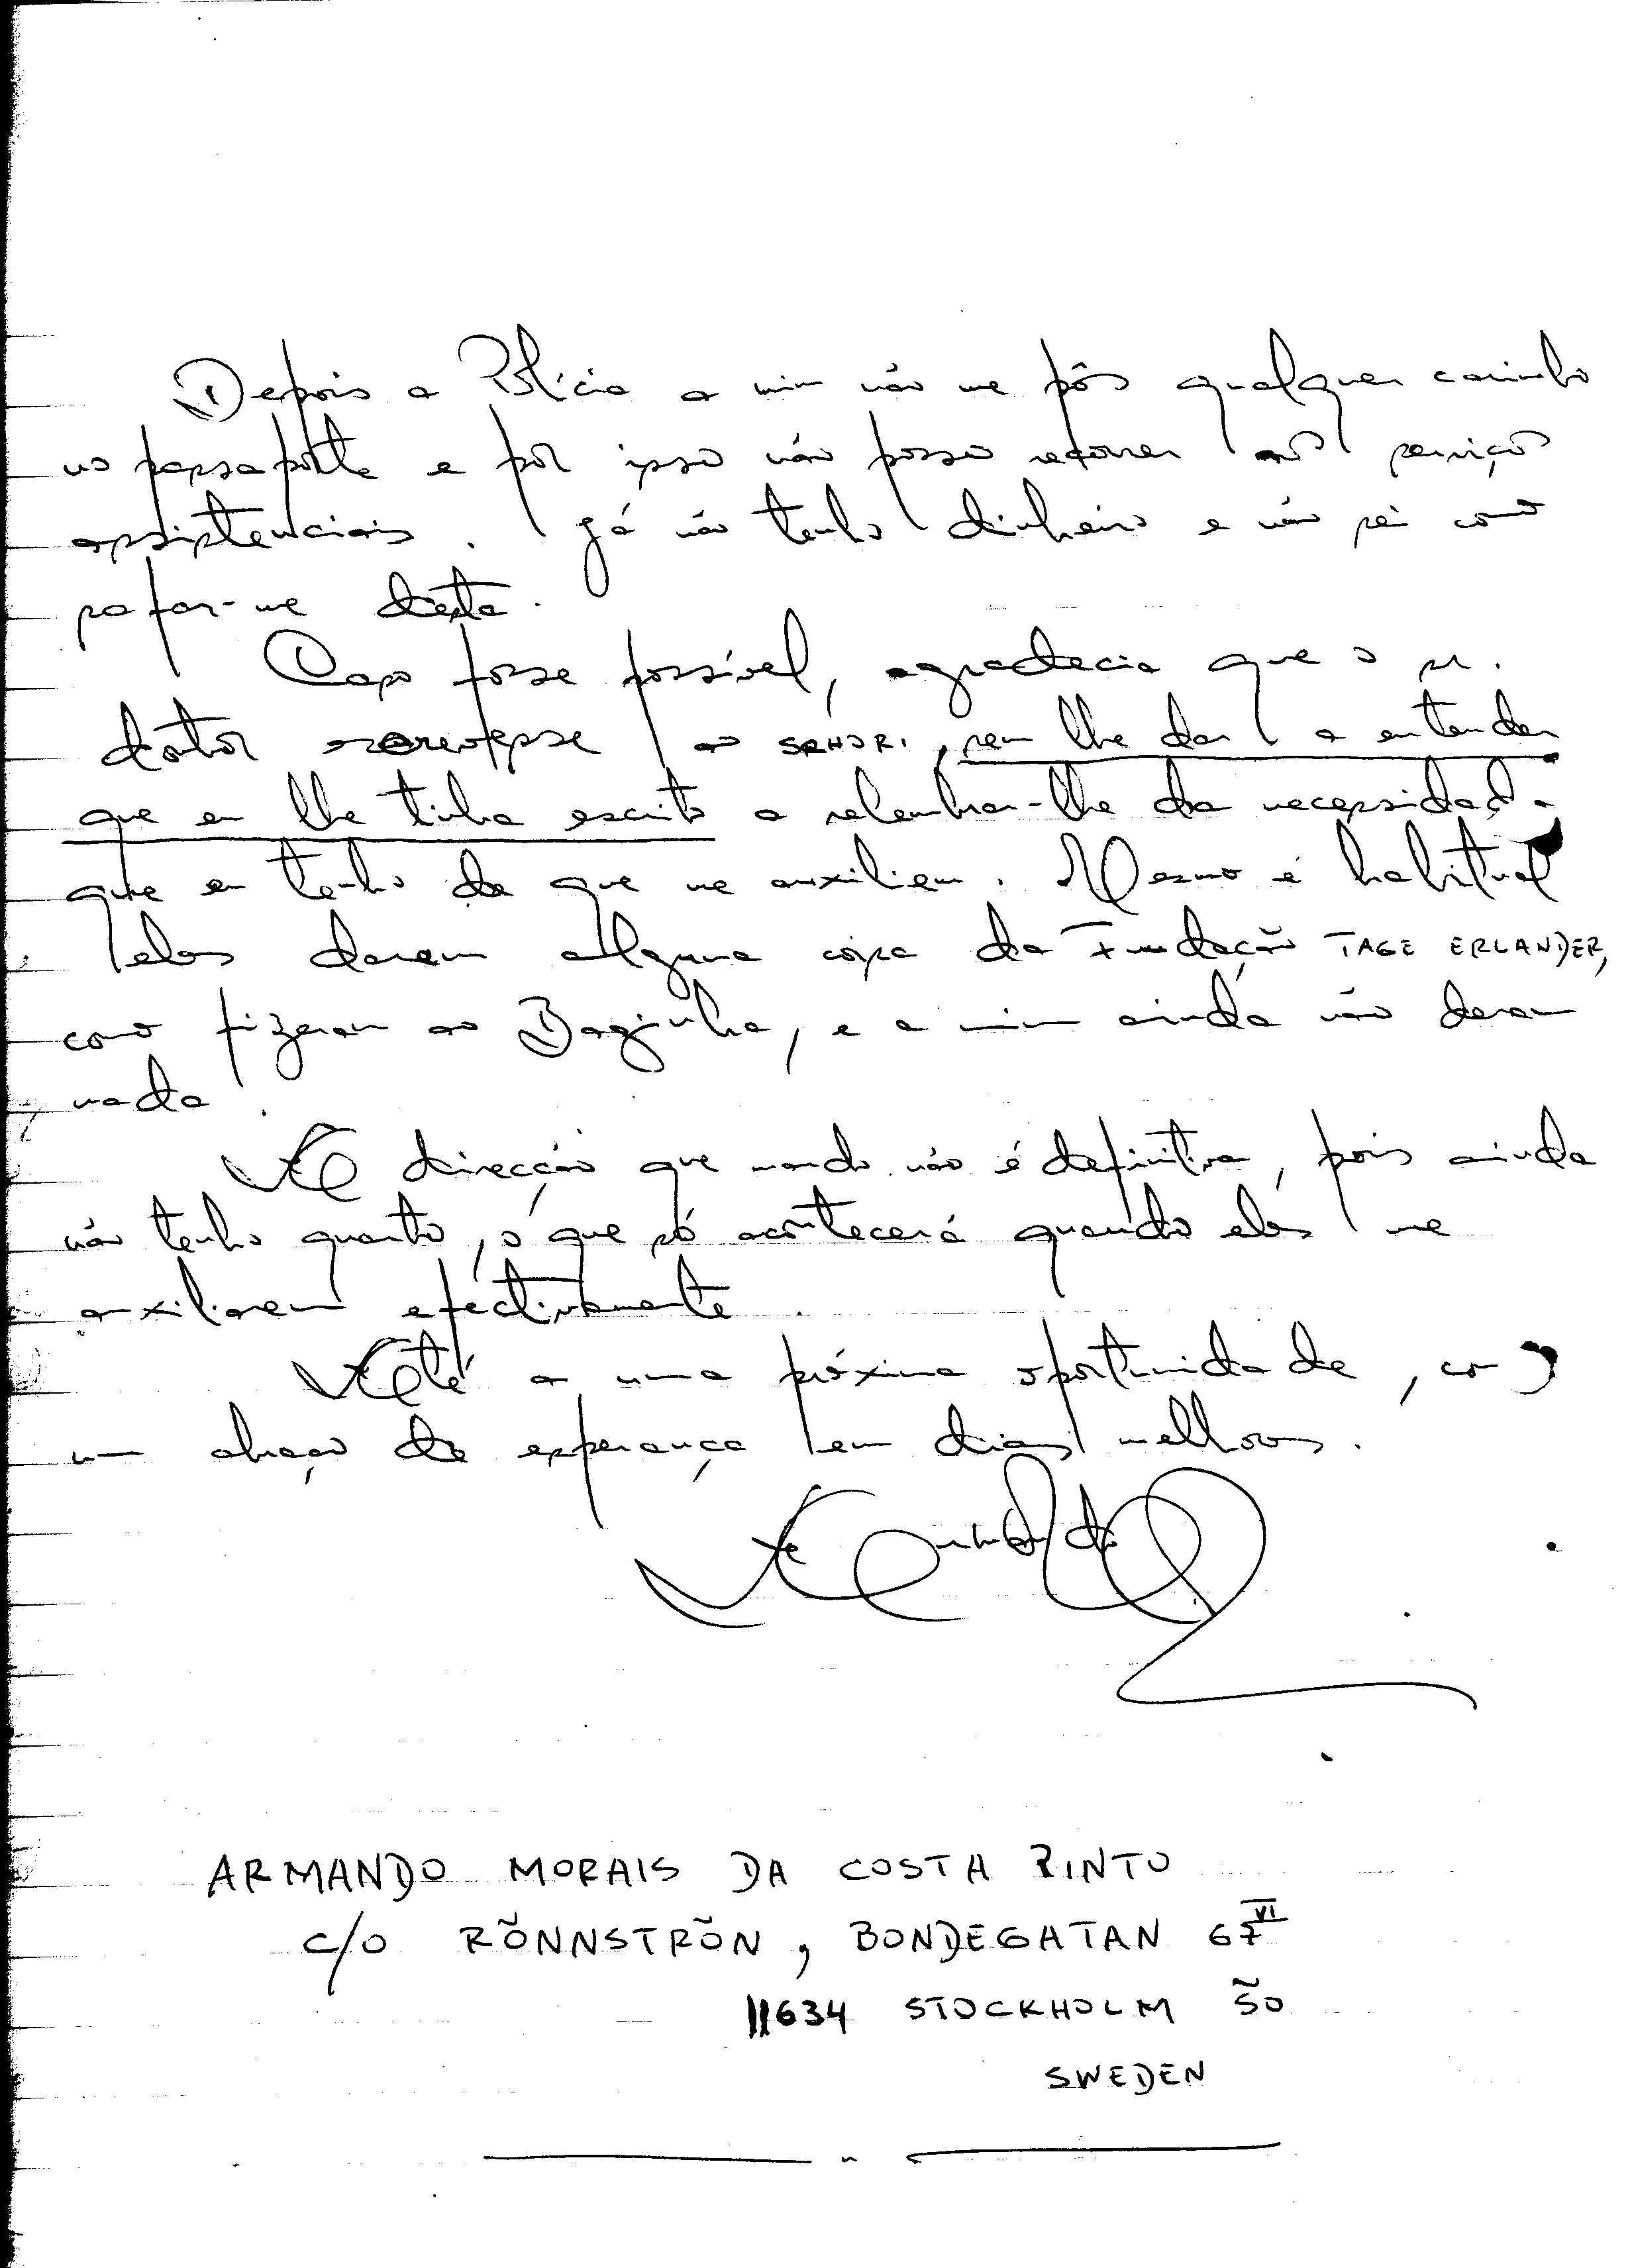 Depois a Polícia a mim não me pôs qualquer carimbo
no passaporte e por isso não posso recorrer aos serviços
assistenciais. Já não tenho dinheiro e não sei como
safar-me desta.
Caso fosse possível, agradecia que o sr.
doutor escrevesse ao SCHORI, sem lhe dar a entender
que eu lhe tinha escrito a relembrar-lhe da necessidade
que eu tenho de que me auxiliem. Mesmo é habitual
eles darem alguma coisa da Fundação TAGE ERLANDER,
como fizeram ao Baginha, e a mim ainda não deram
nada.
A direcção que mando não é definitiva, pois ainda
não tenho quarto, o que só acontecerá quando eles me
auxiliarem efectivamente.
Até a uma próxima oportunidade, com
um abraço de esperança em dias melhores.
Armando
ARMANDO MORAIS DA COSTA PINTO
c/o RÕNNSTRÕN, BONDEGATAN 67 VI
11634 STOCKHOLM SÕ
SWEDEN